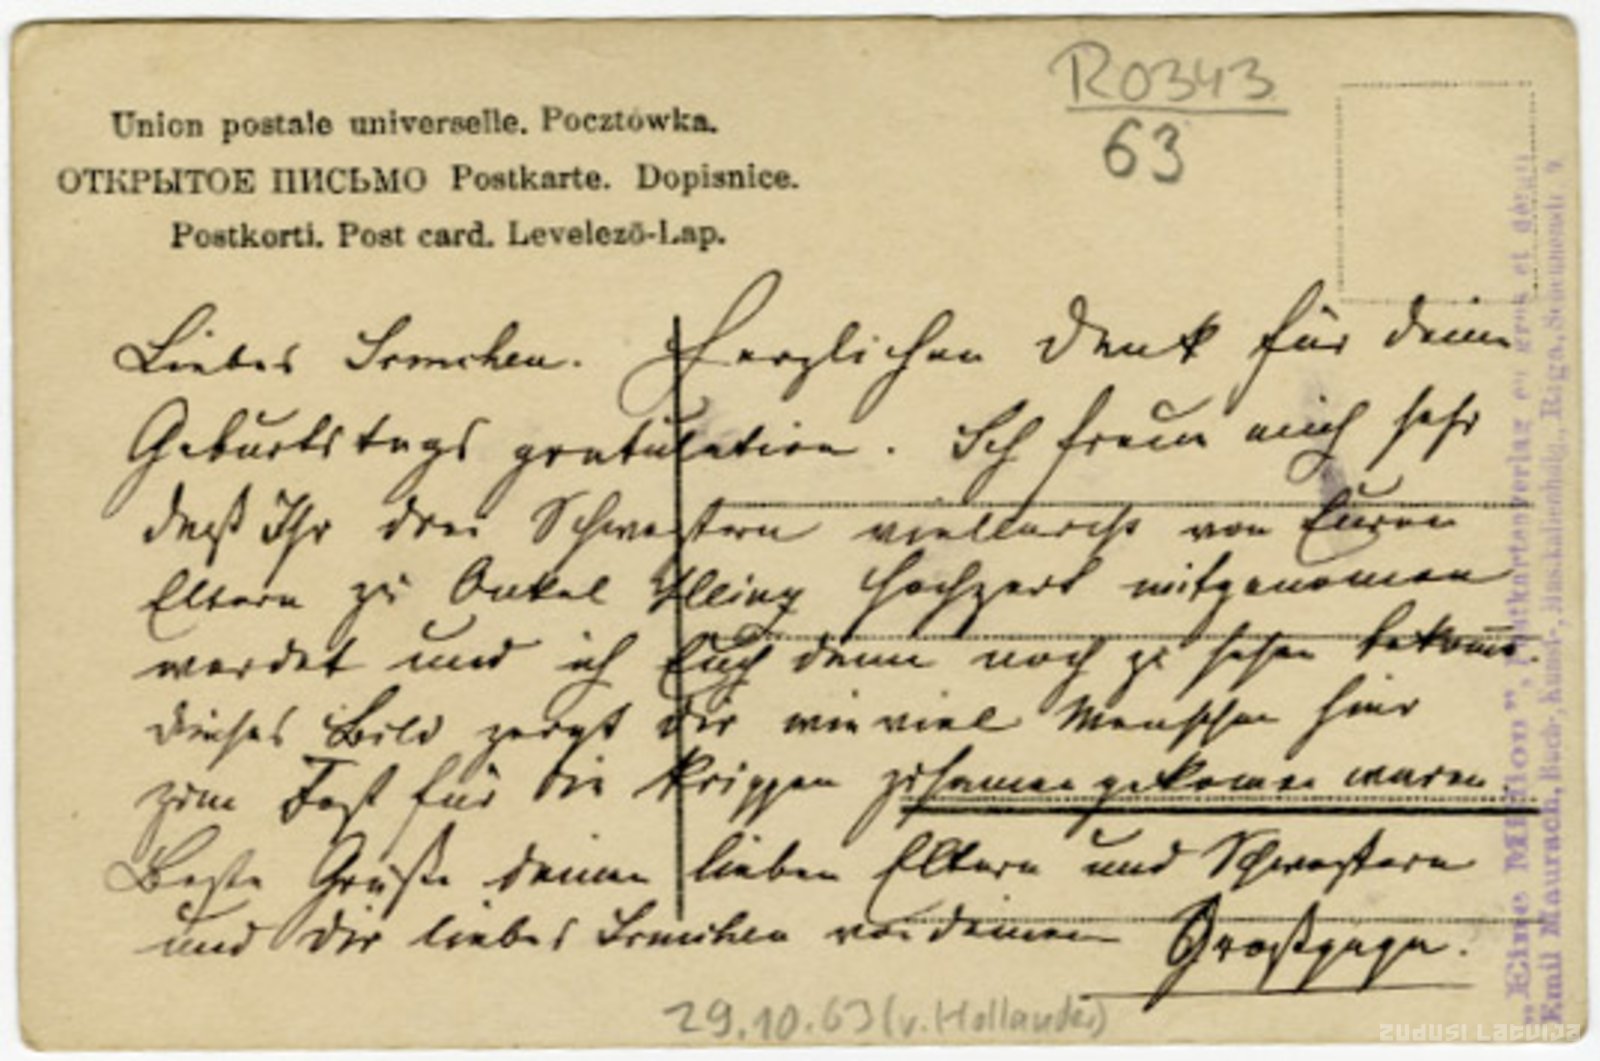 R0343
63
Union postale universelle. Pocztówka.
ОТКРЫТОЕ ПИСЬМО Postkarte. Dopisnice.
Postkorti. Post card. Levelező-Lap.
Liebes Irmchen. Herzlichen Dank für deine
Geburtstags gratulation. Ich freue mich sehr
daß Ihr drei Schwestern vielleicht von Euren
Eltern zu Onkel Hochzeit mitgenomen
werdet und ich Euch dann noch zu sehen bekome.
dieses Bild zeigt Dir wie viel Menschen hier
zum Fest für die Krippen zusamen gekomen waren
Beste Grüße deinen lieben Eltern und Schwestern
und Dir liebes Irmchen von deinem Großpapa.
29.10.63 (v. Hollander)
"Eine Million", Postkartenverlag en gros et détail
Emil Maurach, Buch-, Kunst-, Musikalienhdlg., Riga, Scheunenstr. 9
zudusi Latvija